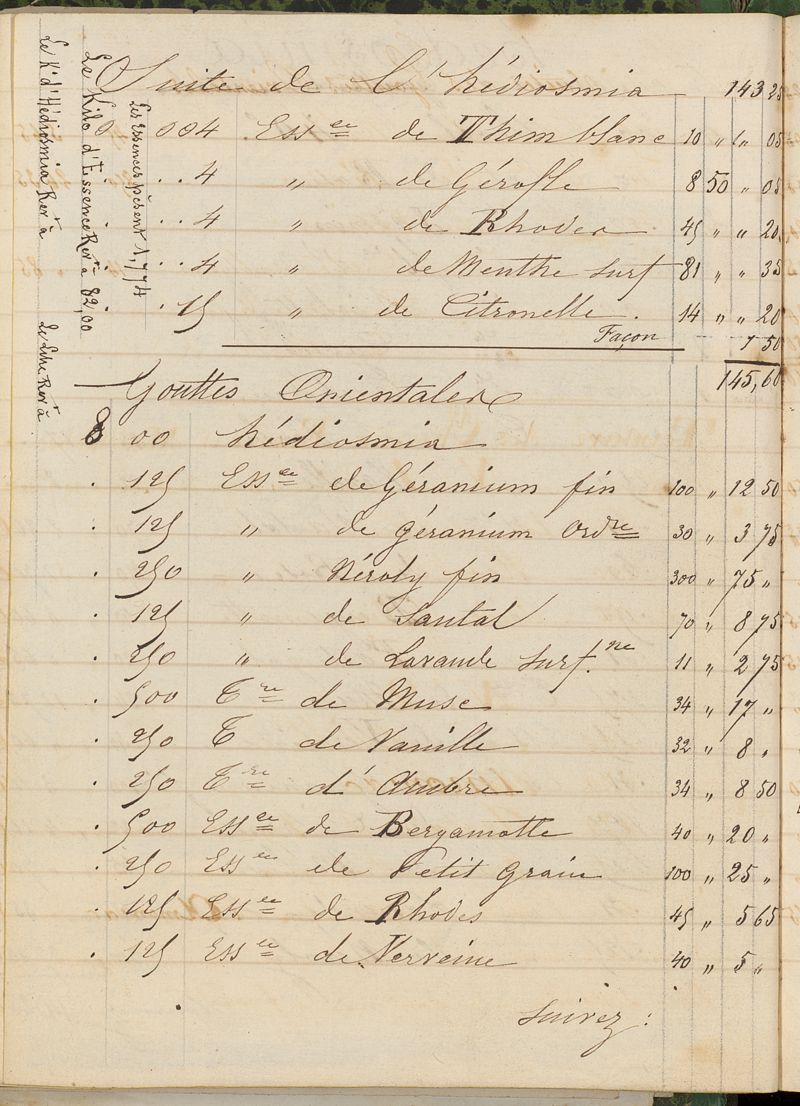 Suite de l'hédiosmia 143 25
0 004 Essce de Thim blanc 10 " " 05
. . . 4 " de Gérofle 8 50 " 05
. . . 4 " de Rhodes 45 " " 20
. . . 4 " de Menthe surf 81 " " 35
. . 15 " de Citronelle . 14 " " 20
Façon 1 50
145,60
Gouttes Orientales
8 00 hédiosmia
. 125 Essce de Géranium fin 100 " 12 50
. 125 " de géranium Ordre 30 " 3 75
. 250 " Néroly fin 300 " 75 "
. 125 " de Santal 70 " 8 75
. 250 " de Lavande surf.ne 11 " 2 75
. 500 Tre de Musc 34 " 17 "
. 250 T de Vanille 32 " 8 "
. 250 Tre d'Ambre 34 " 8 50
. 500 Essce de Bergamotte 40 " 20 "
. 250 Essce de Petit grain 100 " 25 "
. 125 Essce de Rhodes 45 " 5 65
. 125 Essce de Verveine 40 " 5 "
Suivez :
Les Essences pèsent 1,774
Le Kilo d'Essence Rert à 82,00
Le K. d'Hédiosmia Rert à Le Litre Rert à